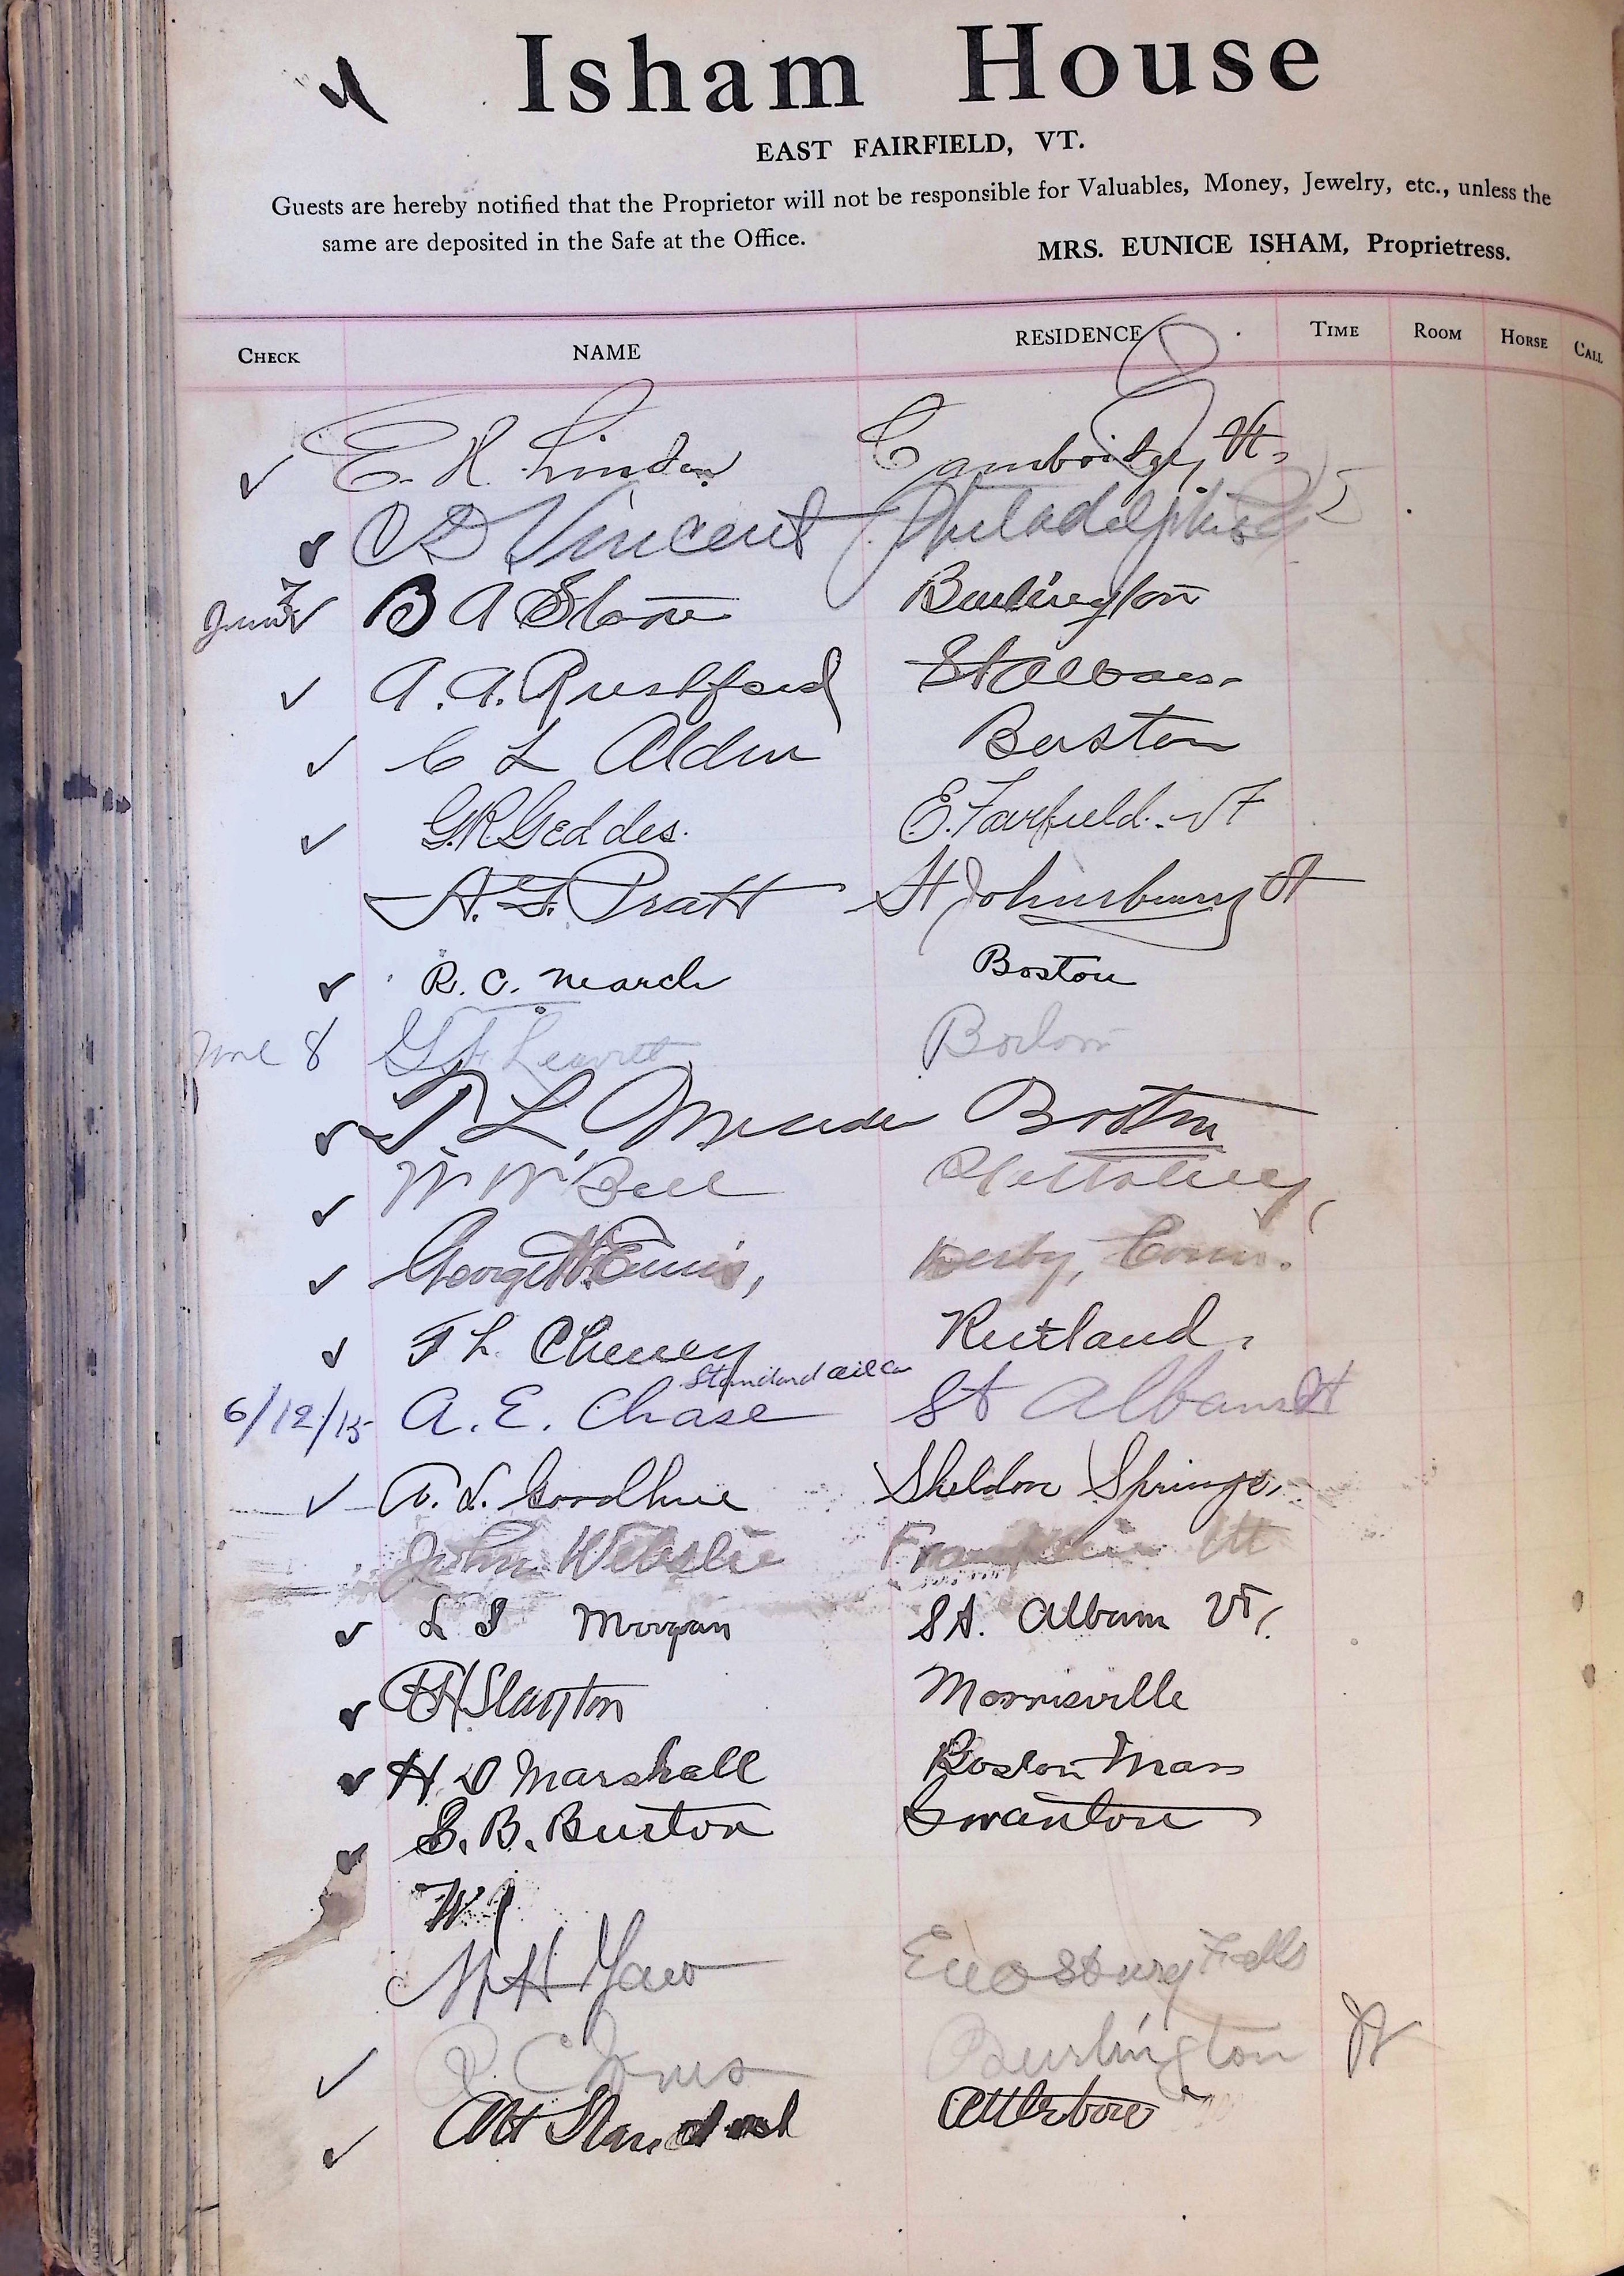 Isham House
EAST FAIRFIELD, VT.
Guests are hereby notified that the Proprietor will not be responsible for Valuables, Money, Jewelry, etc., unless the
same are deposited in the Safe at the Office.
MRS. EUNICE ISHAM, Proprietress.
CHECK NAME RESIDENCE TIME ROOM HORSE CALL
E. R. Linden Cambridge, Vt.
Vincent Philadelphia
June 7 B A Stone Burlington
A. A. Rushford St Albans
C L Alden Boston
G.R. Geddes. E. Fairfield. Vt
A. G. Pratt St Johnsbury Vt
R. C. March Boston
June 8 Leavitt Boston
T. L. Boston
W W Bell
George Derby, Conn.
F L Cheney Rutland.
Standard Oil Co
6/12/15 A. E. Chase St Albans Vt
A. L. Goodhue Sheldon Springs,
John Webster Franklin Vt
L S Morgan St. Albans Vt.
H Slayton Morrisville
H D Marshall Boston Mass
S. B. Burton Swanton
W
H Yaw Enosburg Falls
C Jones Burlington Vt
Standish Attleboro